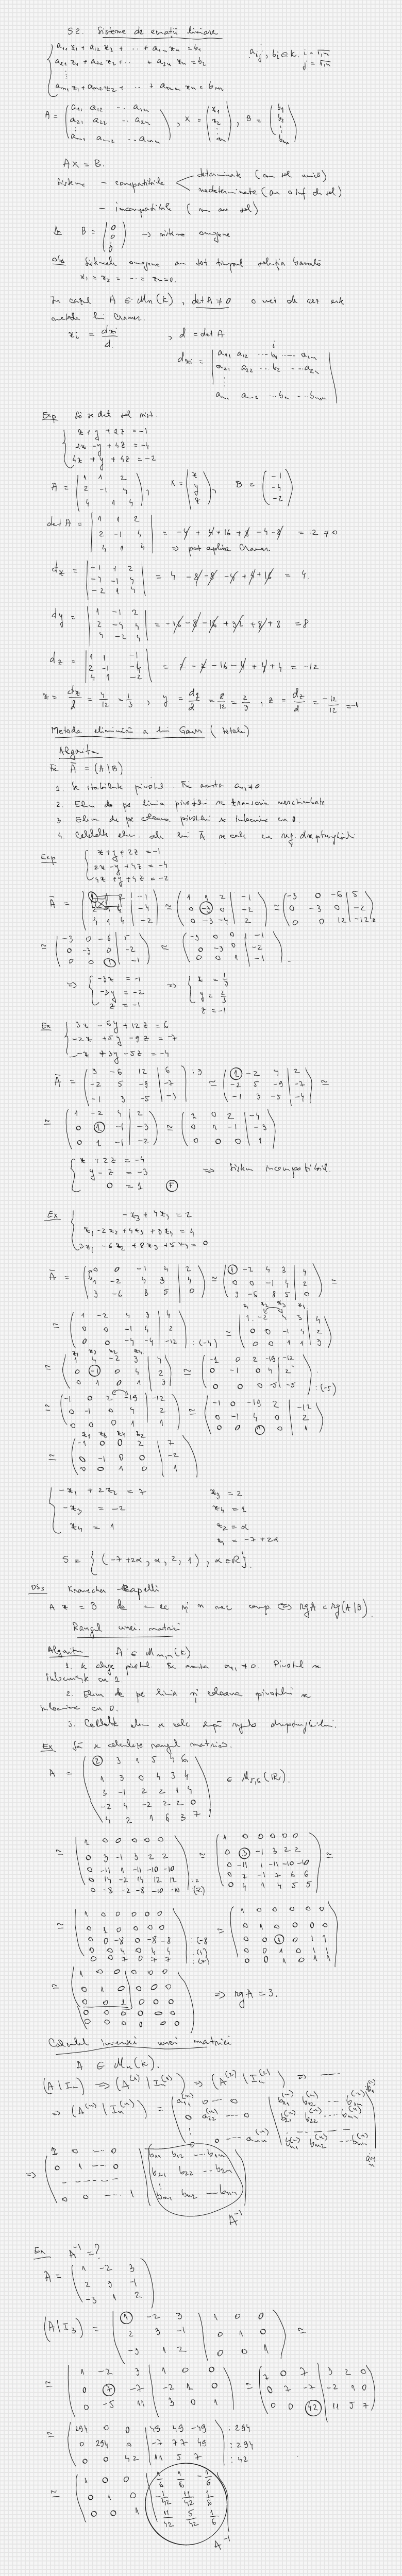 S2. Sisteme de ecuații liniare
a11 x1 + a12 x2 + ... + a1n xn = b1
a21 x1 + a22 x2 + ... + a2n xn = b2
⋮
am1 x1 + am2 x2 + ... + amn xn = bm
aij, bi ∈ K, i = 1,m
j = 1,n
A = (a11 a12 ... a1n
a21 a22 ... a2n
⋮
am1 am2 ... amn), X = (x1 x2 ⋮ xn), B = (b1 b2 ⋮ bm)
AX = B.
Sisteme - compatibile
determinate (au sol unică)
nedeterminate (au o inf de sol)
- incompatibile (nu au sol)
B = (0 0 ⋮ 0) → sistem omogen
Obs Sistemele omogene au tot timpul soluția banală
x1 = x2 = ... = xn = 0.
În cazul A ∈ Mn(K), det A ≠ 0 o met de rez este
metoda lui Cramer
xi = dxi / d, d = det A
dxi = | a11 a12 ... b1 ... a1n
a21 a22 ... b2 ... a2n
⋮
an1 an2 ... bn ... ann |
Exp Să se det sol sist.
x + y + 2z = -1
2x - y + 4z = -4
4x + y + 4z = -2
A = (1 1 2
2 -1 4
4 1 4), X = (x y z), B = (-1 -4 -2)
det A = | 1 1 2
2 -1 4
4 1 4 | = -4 + 4 + 16 + 8 - 4 - 8 = 12 ≠ 0
⇒ pot aplica Cramer
dx = | -1 1 2
-4 -1 4
-2 1 4 | = 4 - 8 - 8 - 4 + 4 + 16 = 4.
dy = | 1 -1 2
2 -4 4
4 -2 4 | = -16 - 8 - 16 + 32 + 8 + 8 = 8
dz = | 1 1 -1
2 -1 -4
4 1 -2 | = 2 - 2 - 16 - 4 + 4 + 4 = -12
x = dx/d = 4/12 = 1/3, y = dy/d = 8/12 = 2/3, z = dz/d = -12/12 = -1
Metoda eliminării a lui Gauss (totală)
Algoritm
Fie Ā = (A|B)
1 Se stabilește pivotul. Fie acesta a11 ≠ 0
2 Elem de pe linia pivotului se transcriu neschimbate
3 Elem de pe coloana pivotului se înlocuiesc cu 0.
4 Celelalte elem. ale lui Ā se calc cu reg dreptunghiului.
Exp
x + y + 2z = -1
2x - y + 4z = -4
4x + y + 4z = -2
Ā = (1 1 2 | -1
2 -1 4 | -4
4 1 4 | -2) ≃ (1 1 2 | -1
0 -3 0 | -2
0 -3 -4 | 2) ≃ (-3 0 -6 | 5
0 -3 0 | -2
0 0 12 | -12)
≃ (-3 0 -6 | 5
0 -3 0 | -2
0 0 1 | -1) ≃ (-3 0 0 | -1
0 -3 0 | -2
0 0 1 | -1).
⇒ -3x = -1
-3y = -2
z = -1
⇒ x = 1/3
y = 2/3
z = -1
Ex
3x - 6y + 12z = 6
-2x + 5y - 9z = -7
-x + 3y - 5z = -4
Ā = (3 -6 12 | 6
-2 5 -9 | -7
-1 3 -5 | -4) :3 ≃ (1 -2 4 | 2
-2 5 -9 | -7
-1 3 -5 | -4) ≃
≃ (1 -2 4 | 2
0 1 -1 | -3
0 1 -1 | -2) ≃ (1 0 2 | -4
0 1 -1 | -3
0 0 0 | 1)
x + 2z = -4
y - z = -3
0 = 1 (F)
⇒ Sistem incompatibil
Ex
-x3 + 4x4 = 2
x1 - 2x2 + 4x3 + 3x4 = 4
3x1 - 6x2 + 8x3 + 5x4 = 0
Ā = (0 0 -1 4 | 2
1 -2 4 3 | 4
3 -6 8 5 | 0) ≃ (1 -2 4 3 | 4
0 0 -1 4 | 2
3 -6 8 5 | 0) ≃
≃ (1 -2 4 3 | 4
0 0 -1 4 | 2
0 0 -4 -4 | -12) :(-4) ≃ (1 -2 4 3 | 4
0 0 -1 4 | 2
0 0 1 1 | 3)
≃ (1 4 -2 3 | 4
0 -1 0 4 | 2
0 1 0 1 | 3) ≃ (-1 0 2 -19 | -12
0 -1 0 4 | 2
0 0 0 -5 | -5) :(-5)
≃ (-1 0 2 -19 | -12
0 -1 0 4 | 2
0 0 0 1 | 1) ≃ (-1 0 -19 2 | -12
0 -1 4 0 | 2
0 0 1 0 | 1)
≃ (-1 0 0 2 | 7
0 -1 0 0 | -2
0 0 1 0 | 1)
-x1 + 2x2 = 7
-x3 = -2
x4 = 1
x3 = 2
x4 = 1
x2 = α
x1 = -7 + 2α
S = {(-7+2α, α, 2, 1), α ∈ R}.
Obs Kronecker Capelli
AX = B de m ec și n nec comp ⇔ rg A = rg(A|B)
Rangul unei matrici
Algoritm A ∈ Mm,n(K)
1. Se alege pivotul. Fie acesta a11 ≠ 0. Pivotul se
înlocuiește cu 1.
2. Elem de pe linia și coloana pivotului se
înlocuiesc cu 0.
3. Celelalte elem se calc după regula dreptunghiului.
Ex Să se calculeze rangul matricei.
A = (2 3 1 5 4 6
1 3 0 4 3 4
3 -1 2 2 1 4
-2 4 -2 2 2 0
4 2 1 6 3 7) ∈ M5,6(R).
≃ (1 0 0 0 0 0
0 3 -1 3 2 2
0 -11 1 -11 -10 -10
0 14 -2 14 12 12
0 -8 -2 -8 -10 -10) :2 :(-2) ≃ (1 0 0 0 0 0
0 3 -1 3 2 2
0 -11 1 -11 -10 -10
0 7 -1 7 6 6
0 4 1 4 5 5) ≃
≃ (1 0 0 0 0 0
0 1 0 0 0 0
0 0 -8 0 -8 -8
0 0 4 0 4 4
0 0 7 0 7 7) ≃ (1 0 0 0 0 0
0 1 0 0 0 0
0 0 1 0 1 1
0 0 1 0 1 1
0 0 1 0 1 1)
≃ (1 0 0 0 0 0
0 1 0 0 0 0
0 0 1 0 0 0
0 0 0 0 0 0
0 0 0 0 0 0) ⇒ rg A = 3.
Calculul inversei unei matrici
A ∈ Mn(K).
(A|In) ⇒ (A(1)|In(1)) ⇒ (A(2)|In(2)) ⇒ ...
⇒ (A(n)|In(n)) = (a11(n) 0 ... 0
0 a22(n) ... 0
⋮
0 0 ... ann(n) | b11(n) b12(n) ... b1n(n)
b21(n) b22(n) ... b2n(n)
bn1(n) bn2(n) ... bnn(n))
⇒ (1 0 ... 0
0 1 ... 0
0 0 ... 1 | b11 b12 ... b1n
b21 b22 ... b2n
⋮
bn1 bn2 ... bnn)
A⁻¹
Ex A⁻¹ = ?
A = (1 -2 3
2 3 -1
-3 1 2)
(A|I3) = (1 -2 3 | 1 0 0
2 3 -1 | 0 1 0
-3 1 2 | 0 0 1) ≃
≃ (1 -2 3 | 1 0 0
0 7 -7 | -2 1 0
0 -5 11 | 3 0 1) ≃ (7 0 7 | 3 2 0
0 7 -7 | -2 1 0
0 0 42 | 11 5 7)
≃ (294 0 0 | 49 49 -49
0 294 0 | -7 77 49
0 0 42 | 11 5 7) :294 :294 :42
≃ (1 0 0 | 1/6 1/6 -1/6
0 1 0 | -1/42 11/42 1/6
0 0 1 | 11/42 5/42 1/6)
A⁻¹